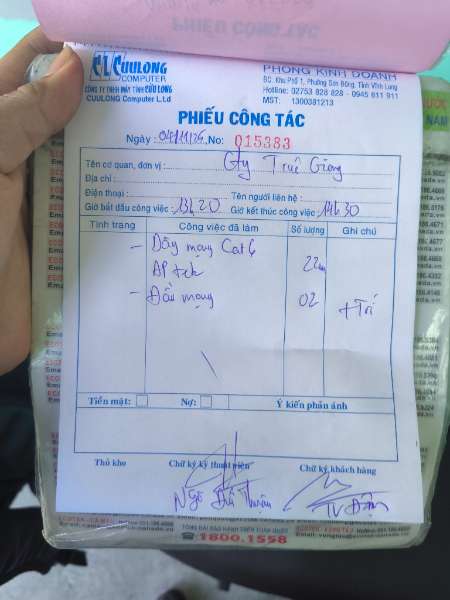 CUULONG
COMPUTER
CÔNG TY TNHH MÁY TÍNH CỬU LONG
CUULONG Computer L.td
PHÒNG KINH DOANH
ĐC: Khu phố 1, Phường Sơn Đông, Tỉnh Vĩnh Long
Hotline: 02753 828 828 - 0945 611 911
MST: 1300381213
PHIẾU CÔNG TÁC
Ngày: 04/11/25 No: 015383
Tên cơ quan, đơn vị: Cty Trúc Giang
Địa chỉ:
Điện thoại: Tên người liên hệ:
Giờ bắt đầu công việc: 13h20 Giờ kết thúc công việc: 14h30
Tình trạng Công việc đã làm Số lượng Ghi chú
- Dây mạng Cat6 22m
AP tek
- Đầu mạng 02 + Trí
Tiền mặt: Nợ: Ý kiến phản ánh
Thủ kho Chữ ký kỹ thuật viên Chữ ký khách hàng
1800.1558